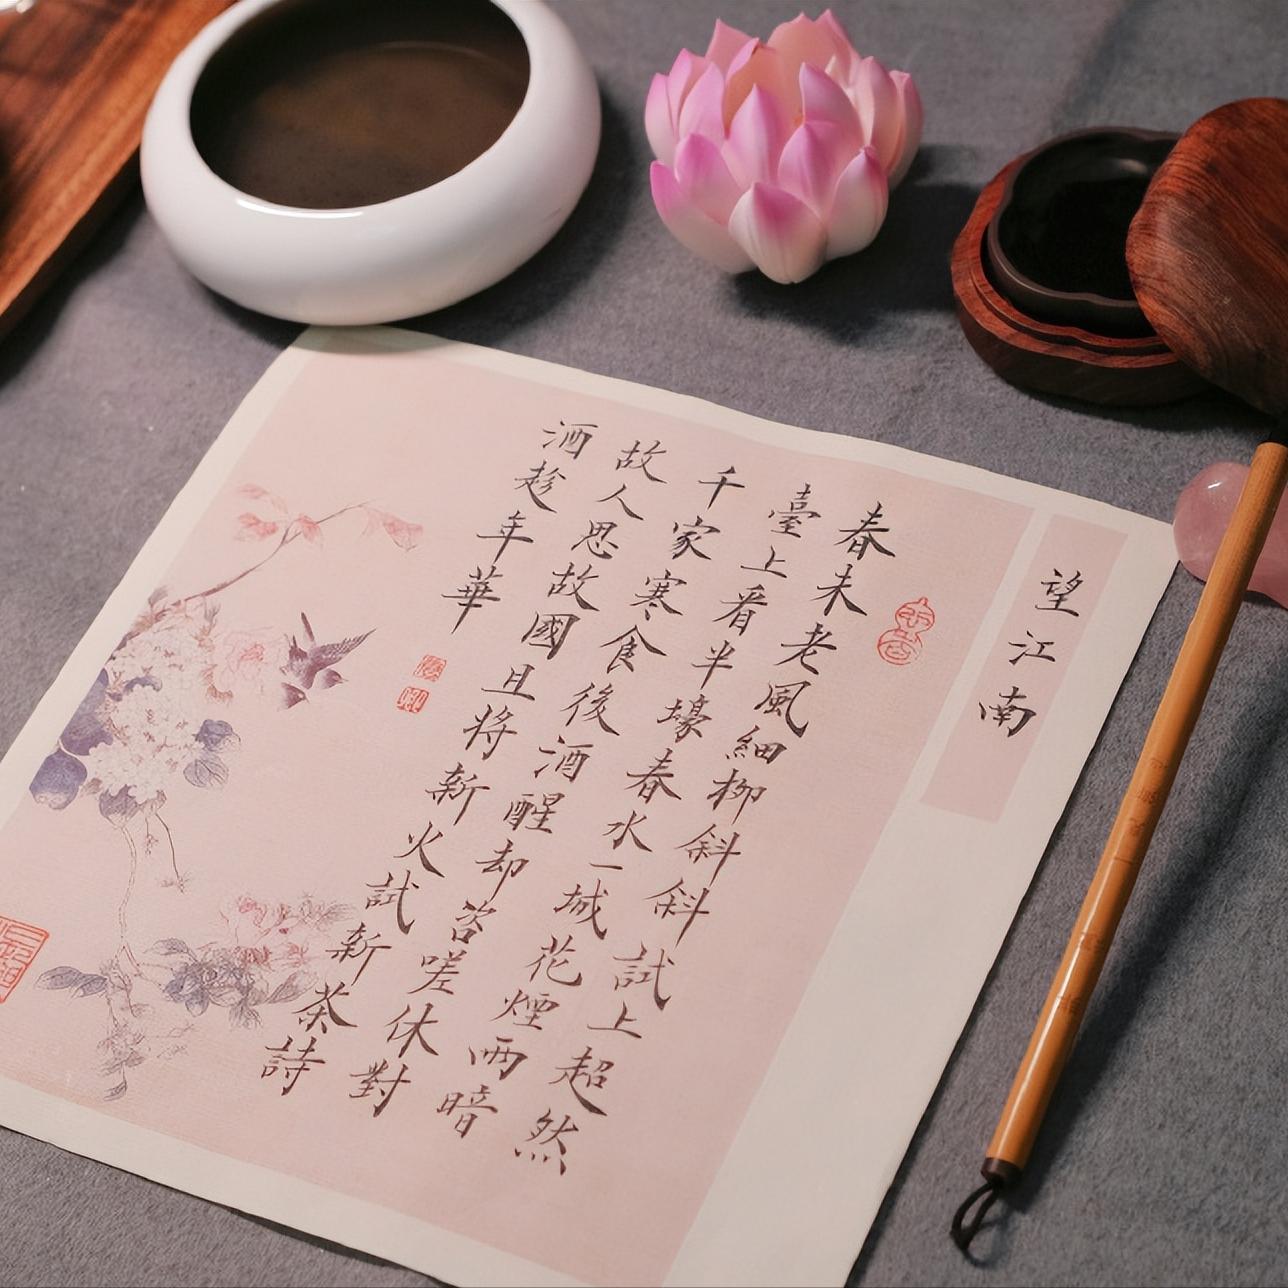 望江南
春未老風細柳斜斜試上超然
臺上看半壕春水一城花煙雨暗
千家寒食後酒醒却咨嗟休對
故人思故國且将新火試新茶詩
酒趁年華